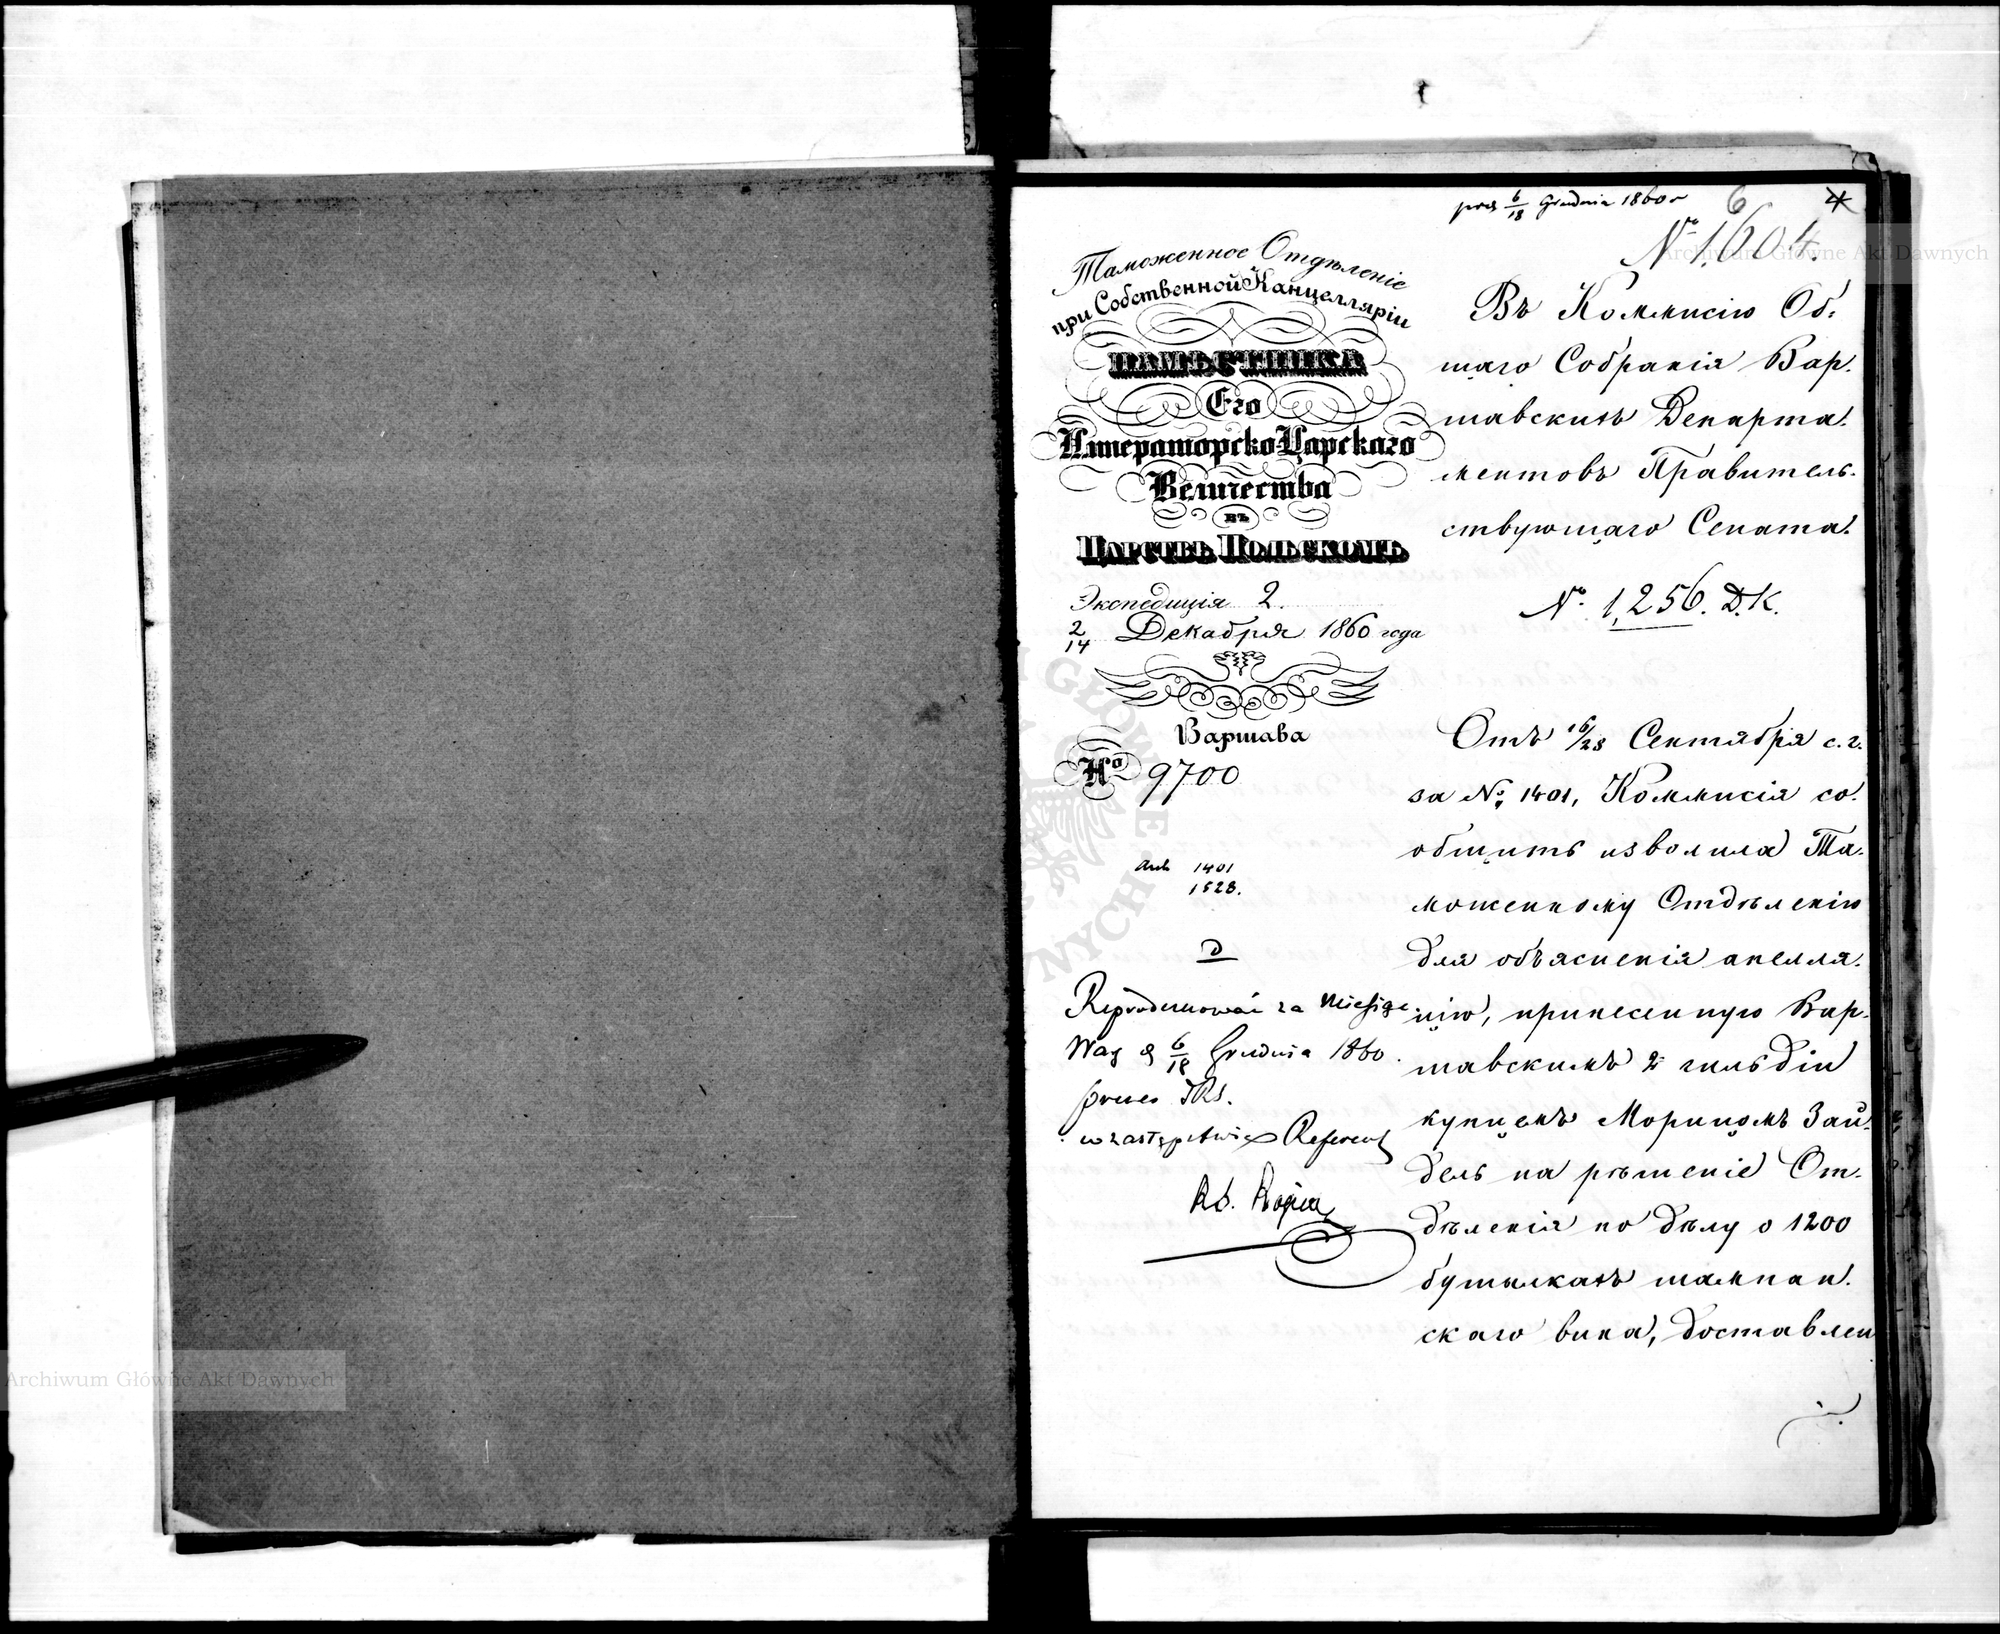 prez 6/18 Grudnia 1860 r
6
4
№ 1,604.
Таможенное Отдѣленіе
при Собственной Канцелляріи
НАМѢСТНИКА
Его
Императорско-Царскаго
Величества
въ
ЦАРСТВѢ ПОЛЬСКОМЪ
Экспедиція 2.
2/14 Декабря 1860 года
Варшава
№ 9700
1401
1523.
D
Reproduкować za Miesiąc
6/18 Grudnia 1860.
Prezes
w zastępstwie Referent
Въ Коммисію Об-
щаго Собранія Вар-
шавскихъ Департа-
ментовъ Правитель-
ствующаго Сената.
№ 1,256. Д.К.
Отъ 16/28 Сентября с. г.
за № 1401, Коммисія со-
общить изволила Та-
моженному Отдѣленію
для объясненія апелля-
цію, принесенную Вар-
шавскимъ 2 гильдіи
купцемъ Морицомъ Зай-
дель на рѣшеніе От-
дѣленія по дѣлу о 1200
бутылкахъ шампан-
скаго вина, доставлен
Archiwum Główne Akt Dawnych
Archiwum Główne Akt Dawnych